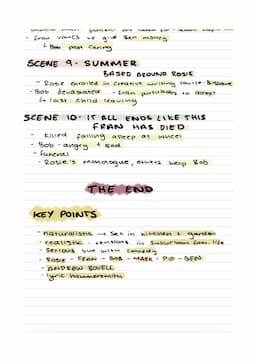 - Fran wants to give Ben money
↳ Bob past caring
SCENE 9 - SUMMER
BASED AROUND ROSIE
- Rosie enrolled in creative writing course - Brisbane
- Bob devastated - Fran persuades to accept
↳ last child leaving
SCENE 10 - IT ALL ENDS LIKE THIS
FRAN HAS DIED
- Killed falling asleep at wheel
- Bob - angry + sad
- Funeral
- Rosie's monologue, others help Bob
THE END
KEY POINTS
- naturalistic → Set in kitchen + garden
- realistic - tensions in suburban fam. life
- Serious but with comedy
- ROSIE - FRAN - BOB - MARK - PIP - BEN
- ANDREW BOVELL
- Lyric Hammersmith